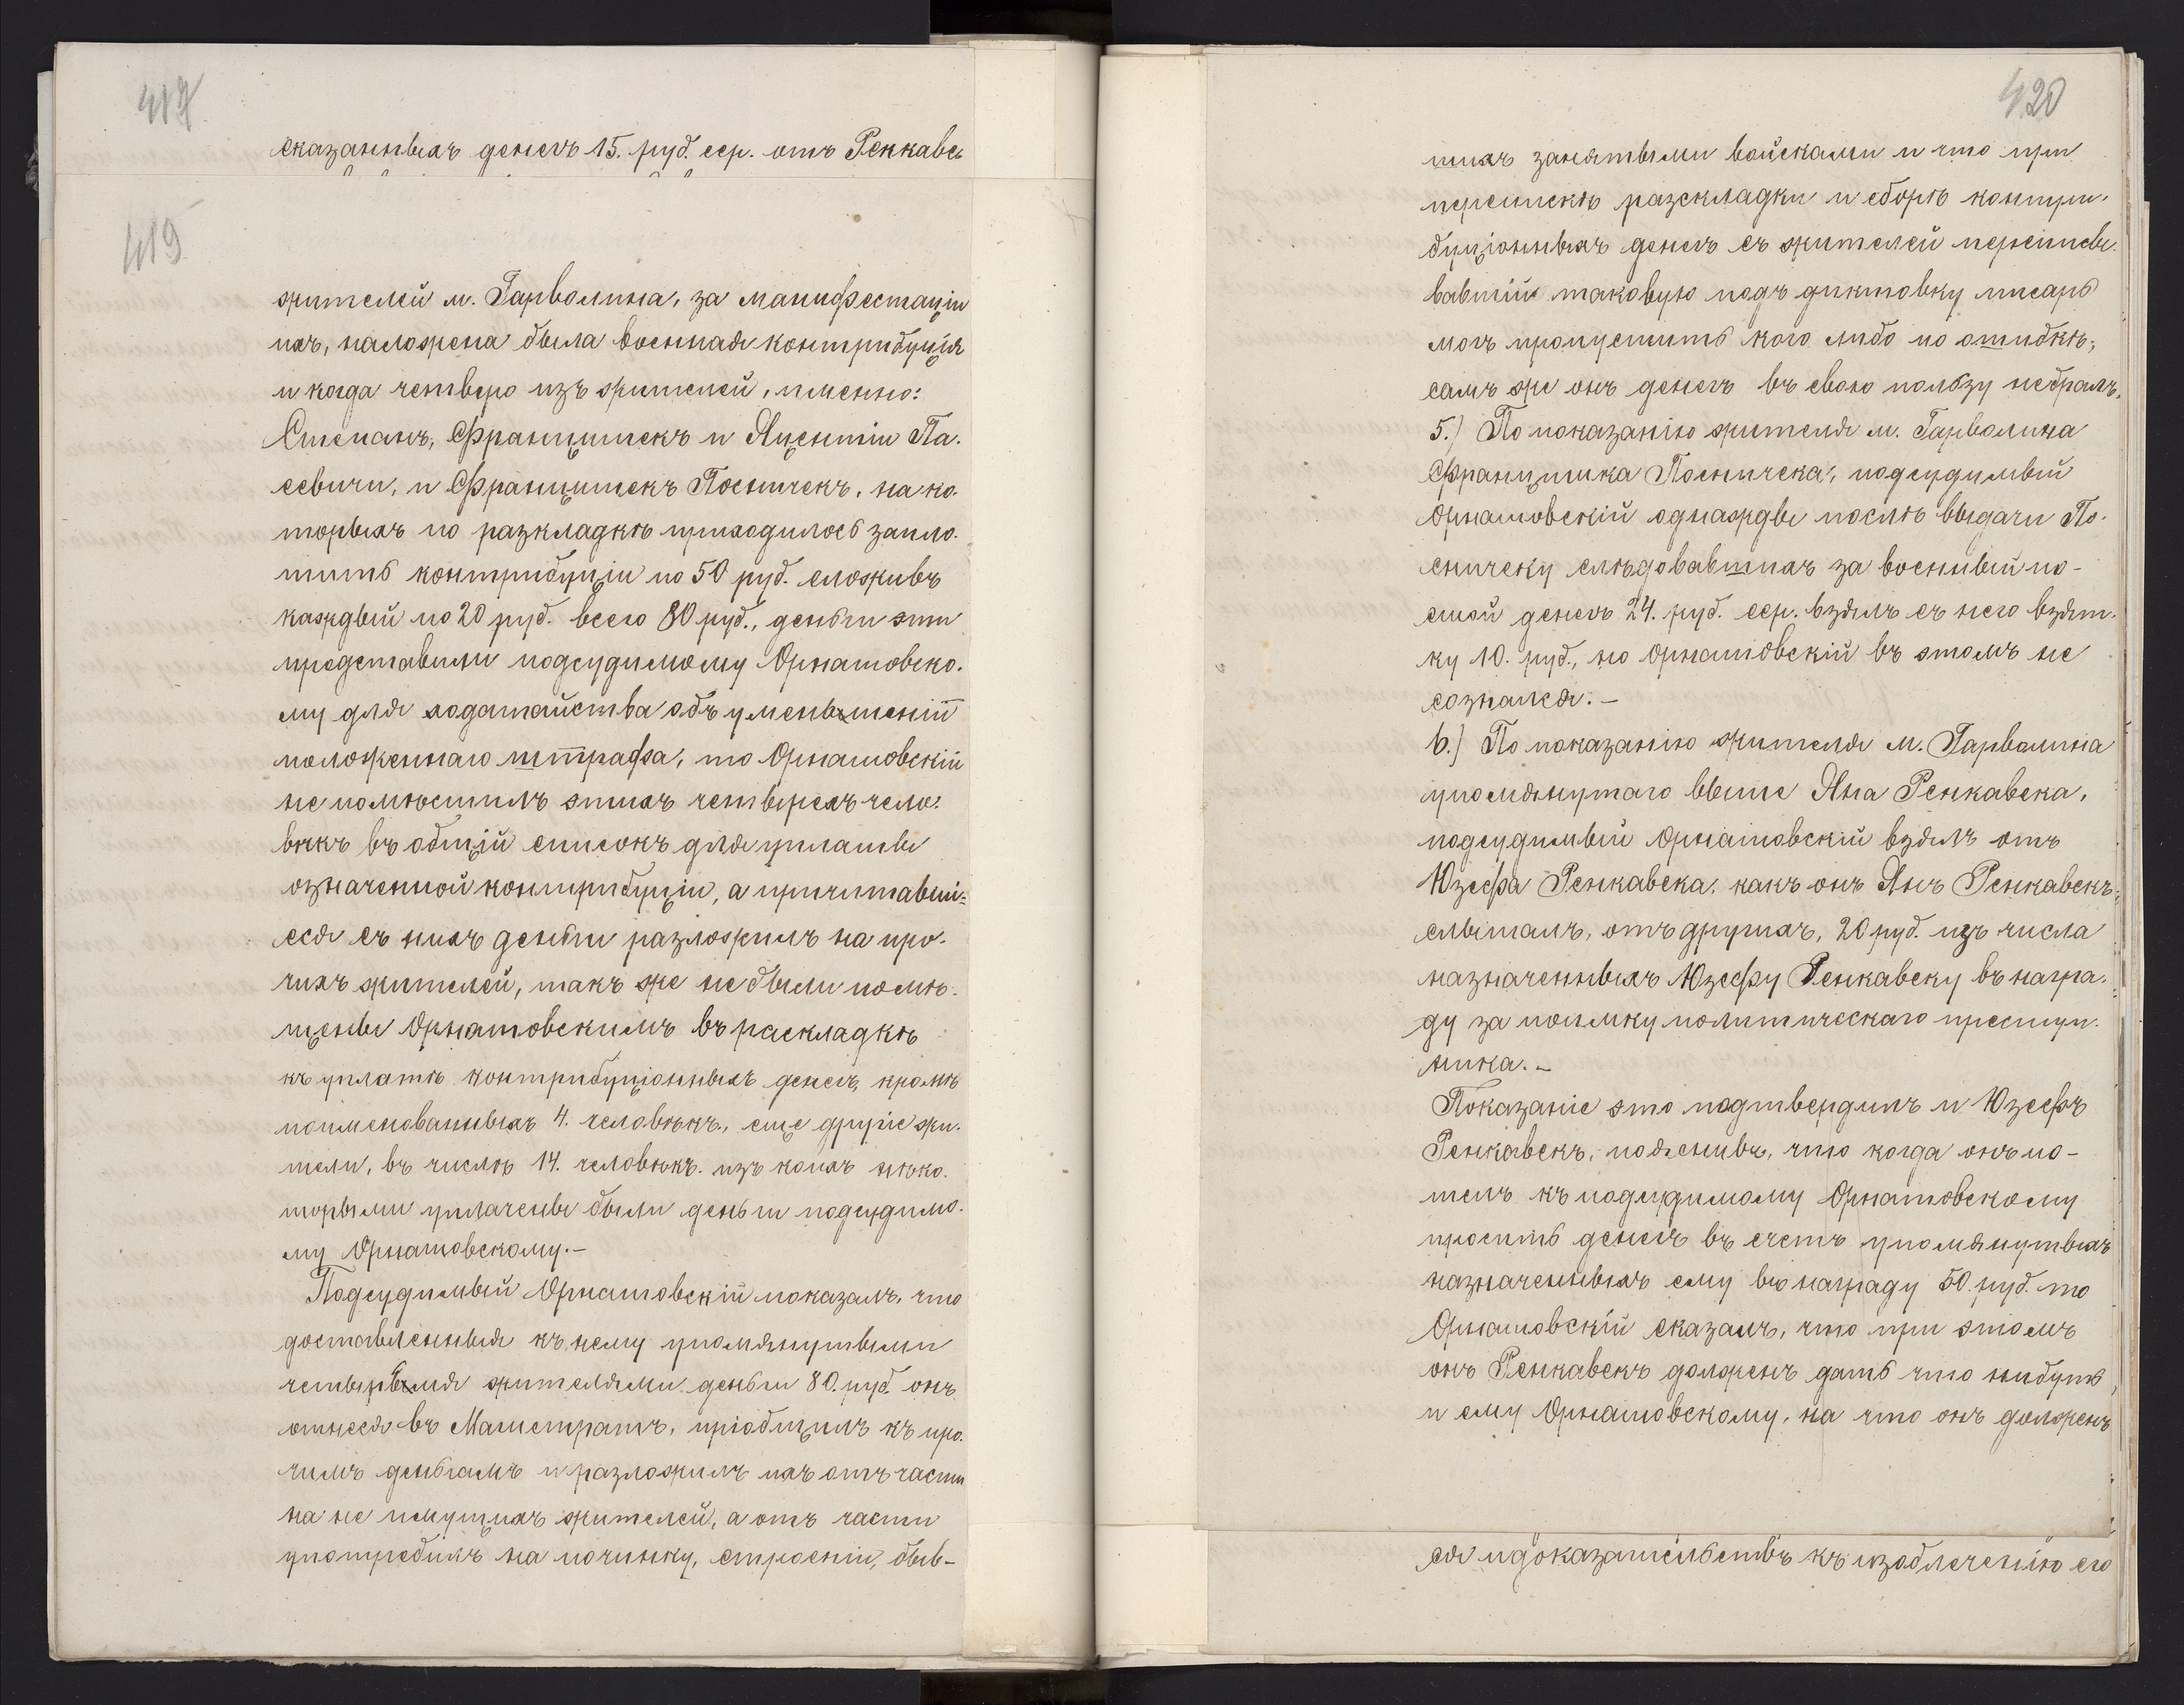 417
сказанныхъ денегъ 15. руб. сер. отъ Ренкавe
419
жителей м. Гарволина, за манифестаціи
ихъ, наложена была военная контрибуція
и когда четверо изъ жителей, именно:
Степанъ, Францишекъ и Яцентій Па-
севичи, и Францишекъ Посничекъ, на ко-
торыхъ по разкладкѣ приходилось запла-
тить контрибуціи по 50 руб. сложивъ
каждый по 20 руб. всего 80 руб., деньги эти
представили подсудимому Орнатовско-
му для ходатайства объ уменьшеніи
положеннаго штрафа, то Орнатовскій
не помѣстилъ этихъ четырехъ чело-
вѣкъ въ общій списокъ для уплаты
означенной контрибуціи, а причитавші-
еся съ нихъ деньги разложилъ на про-
чихъ жителей, такъ же не были помѣ-
щены Орнатовскимъ въ раскладкѣ
къ уплатѣ контрибуціонныхъ денегъ, кромѣ
поименованныхъ 4. человѣкъ, еще другіе жи-
тели, въ числѣ 14. человѣкъ. изъ коихъ нѣко-
торыми уплачены были деньги подсудимо-
му Орнатовскому.-
Подсудимый Орнатовскій показалъ, что
доставленныя къ нему упомянутыми
четырьмя жителями деньги 80. руб. онъ
отнеся въ Магистратъ, пріобщилъ къ про-
чимъ деньгамъ и разложилъ ихъ отъ части
на не имущихъ жителей, а отъ части
употребилъ на починку, строеній, быв-
420
шихъ занятыми войсками и что при
перепискѣ разскладки и сборѣ контри-
буціонныхъ денегъ съ жителей переписы-
вавшій таковую подъ диктовку писарь
могъ пропустить кого либо по ошибкѣ;
самъ же онъ денегъ въ свою пользу небралъ.
5.) По показанію жителя м. Гарволина
Францишка Посничека, подсудимый
Орнатовскій однажды послѣ выдачи По-
сничеку слѣдовавшихъ за военный по-
стой денегъ 24. руб. сер. взялъ съ него взят-
ку 10. руб., но Орнатовскій въ этомъ не
сознался.-
6.) По показанію жителя м. Гарволина
упомянутаго выше Яна Ренкавека,
подсудимый Орнатовскій взялъ отъ
Юзефа Ренкавека, какъ онъ Янъ Ренкавекъ
слышалъ, отъ другихъ, 20 руб. изъ числа
назначенныхъ Юзефу Ренкавеку въ награ-
ду за поимку политическаго преступ-
ника.-
Показаніе это подтвердилъ и Юзефъ
Ренкавекъ, пояснивъ, что когда онъ по-
шелъ къ подсудимому Орнатовскому
просить денегъ въ счетъ упомянутыхъ
назначенныхъ ему въ награду 50. руб. то
Орнатовскій сказалъ, что при этомъ
онъ Ренкавекъ долженъ дать что нибудь
и ему Орнатовскому, на что онъ долженъ
ся и доказательствъ къ изобличенію его